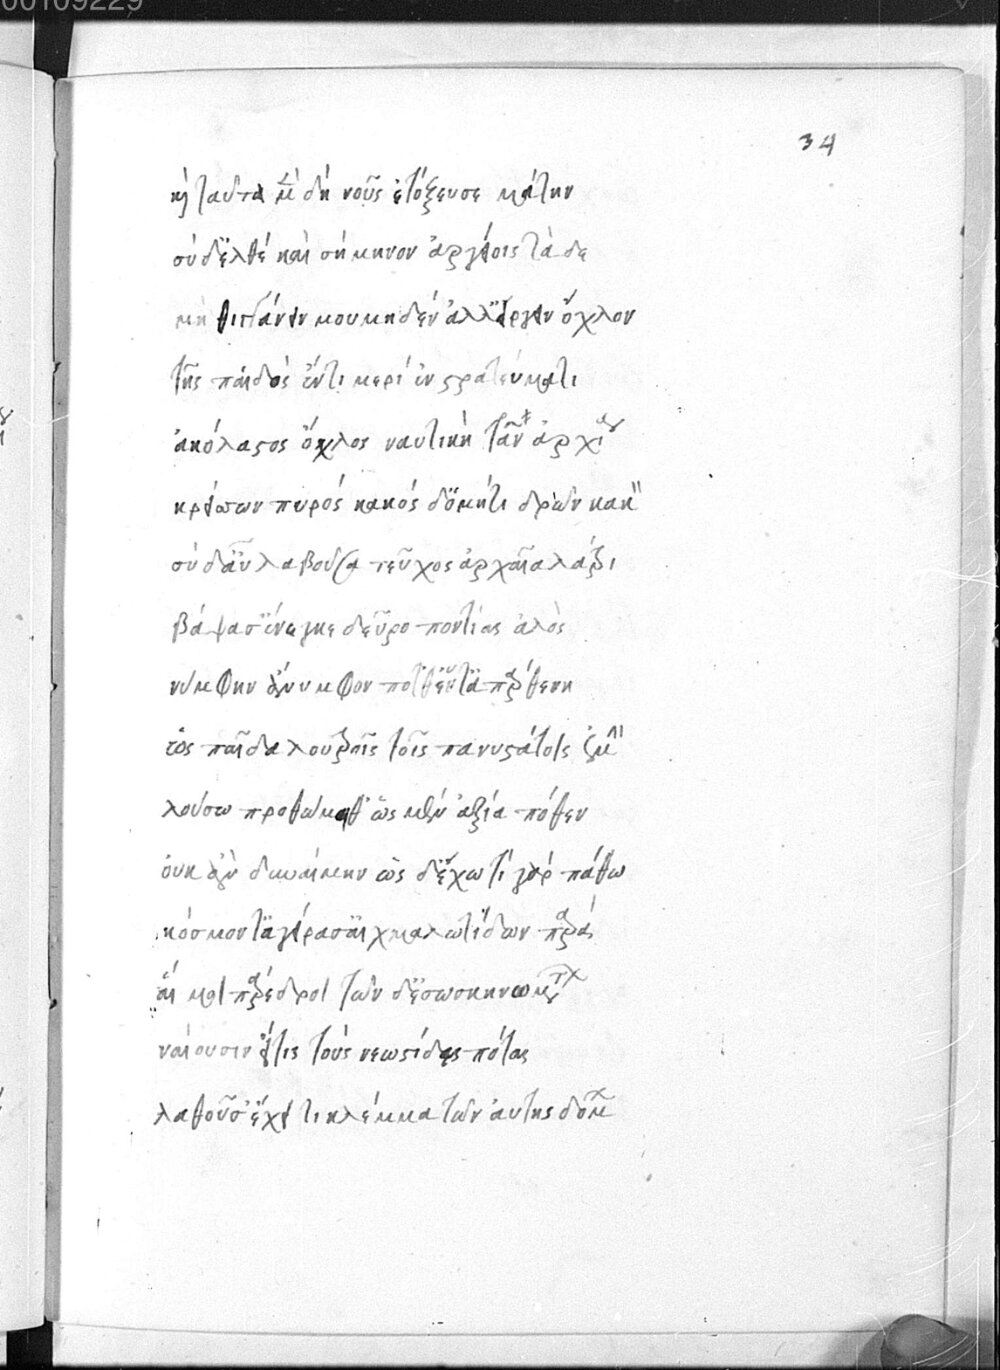 00109229
34
καὶ ταῦτα μὲν δὴ νοῦς ἐτόξευσε μάτην
σύ δ' ἔλθέ καὶ σήμηνον ἀργείοις τάδε
μὴ θιγγάνειν μου μηδέν' ἀλλ' εἴργειν ὄχλον
τῆς παιδός ἔν τι μερί ἐν στρατεύματι
ἀκόλαστος ὄχλος ναυτικὴ τ' ἀναρχία
κρείσσων πυρός κακός δ' ὁ μή τι δρῶν κακ
σύ δ' αὖ λαβοῦσα τεῦχος ἀρχαία λάτρι
βάψασ' ἔνεγκε δεῦρο ποντίας ἁλὸς
νύμφην ἄνυμφον παρθένον τ' ἀπάρθενη
ὡς παῖδα λουτροῖς τοῖς πανυστάτοις ἐμὴ
λούσω προθῶμαί θ' ὡς μὲν ἀξία πόθεν
οὐκ ἂν δυναίμην ὡς δ' ἔχω τί γάρ πάθω
κόσμον τ' ἀγείρασ' αἰχμαλωτίδων πάρα
αἵ μοι πάρεδροι τῶν δ' ἔσω σκηνωμάτων
ναίουσιν εἴ τις τοὺς νεωστὶ δεσπότας
λαθοῦσ' ἔχει τι κλέμμα τῶν αὐτῆς δόμων